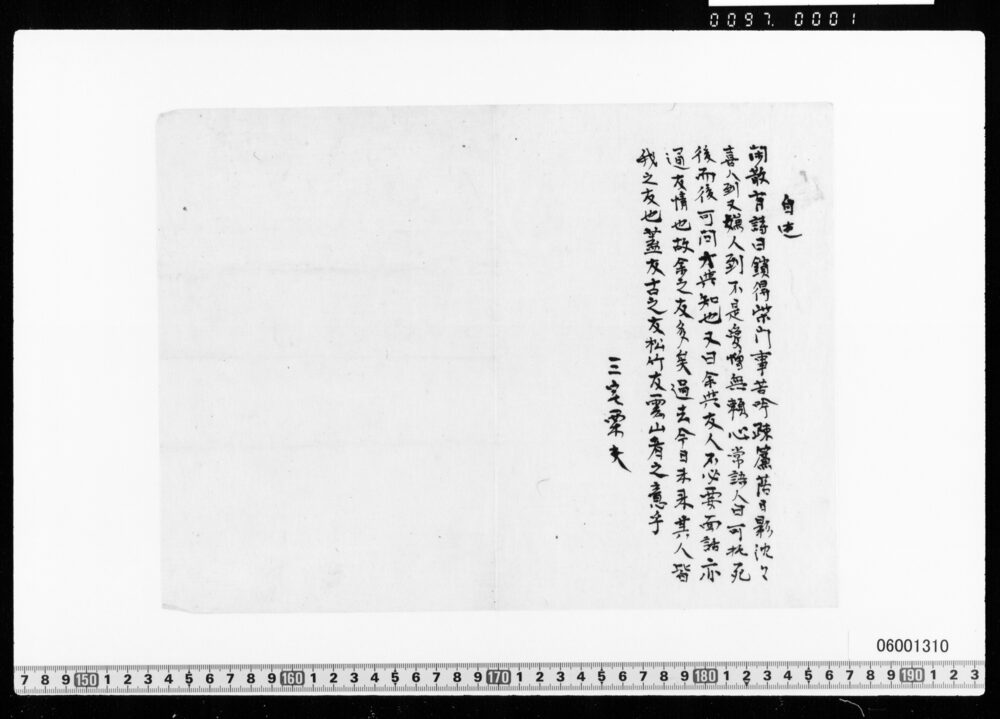 0097. 0001
自述
閑散有詩曰鎖得柴門事苦吟疎簾落日影沈々
喜人到又嫌人到不是愛憎無頼心常語人曰可托死
後而後可同共知也又曰余共友人不必要面話亦
通友情也故余之友多矣過去今日未来其人皆
我之友也蓋友古之友松竹友雲山者之意乎
三宅栗夫
06001310
7 8 9 150 1 2 3 4 5 6 7 8 9 160 1 2 3 4 5 6 7 8 9 170 1 2 3 4 5 6 7 8 9 180 1 2 3 4 5 6 7 8 9 190 1 2 3